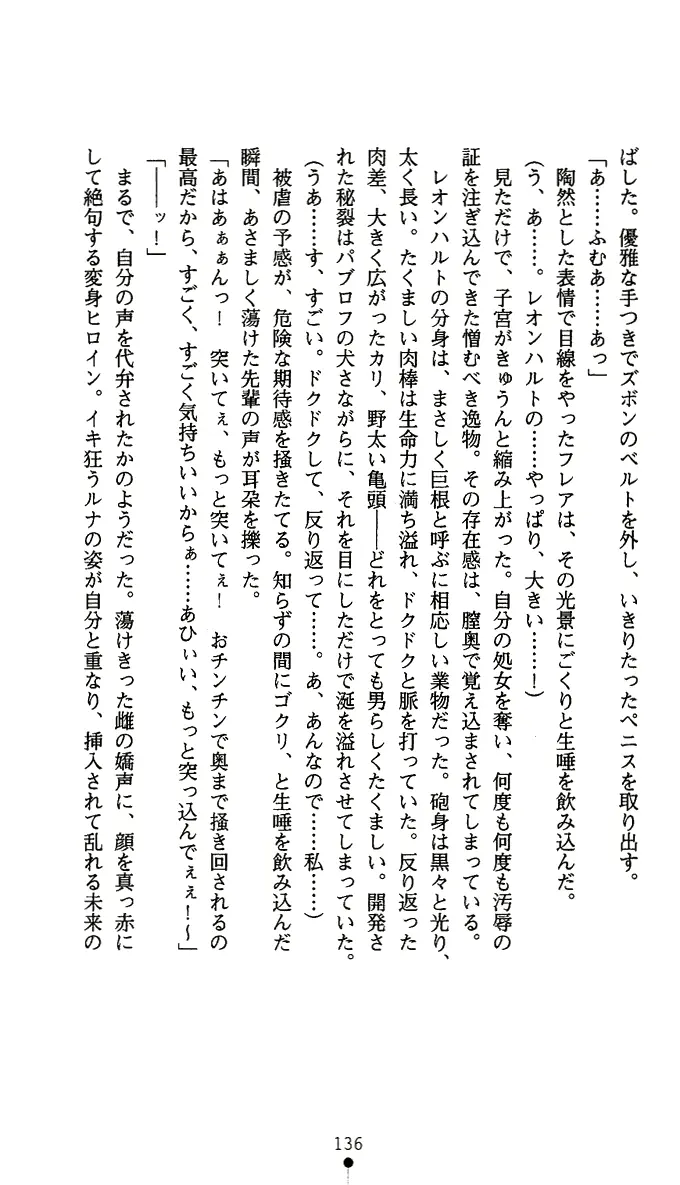 ばした。優雅な手つきでズボンのベルトを外し、いきりたったペニスを取り出す。
「あ……ふむぁ……あっ」
陶然とした表情で目線をやったフレアは、その光景にごくりと生唾を飲み込んだ。
(う、あ……。レオンハルトの……やっぱり、大きい……！)
見ただけで、子宮がきゅうんと縮み上がった。自分の処女を奪い、何度も何度も汚辱の
証を注ぎ込んできた憎むべき逸物。その存在感は、膣奥で覚え込まされてしまっている。
レオンハルトの分身は、まさしく巨根と呼ぶに相応しい業物だった。砲身は黒々と光り、
太く長い。たくましい肉棒は生命力に満ち溢れ、ドクドクと脈を打っていた。反り返った
肉差、大きく広がったカリ、野太い亀頭――どれをとっても男らしくたくましい。開発さ
れた秘裂はパブロフの犬さながらに、それを目にしただけで涎を溢れさせてしまっていた。
(うあ……す、すごい。ドクドクして、反り返って……。あ、あんなので……私……)
被虐の予感が、危険な期待感を掻きたてる。知らずの間にゴクリ、と生唾を飲み込んだ
瞬間、あさましく蕩けた先輩の声が耳朶を擽った。
「あはあぁぁんっ！　突いてぇ、もっと突いてぇ！　おチンチンで奥まで掻き回されるの
最高だから、すごく、すごく気持ちいいからぁ……あひぃい、もっと突っ込んでぇぇ！〜」
「――ッ！」
まるで、自分の声を代弁されたかのようだった。蕩けきった雌の嬌声に、顔を真っ赤に
して絶句する変身ヒロイン。イキ狂うルナの姿が自分と重なり、挿入されて乱れる未来の
136